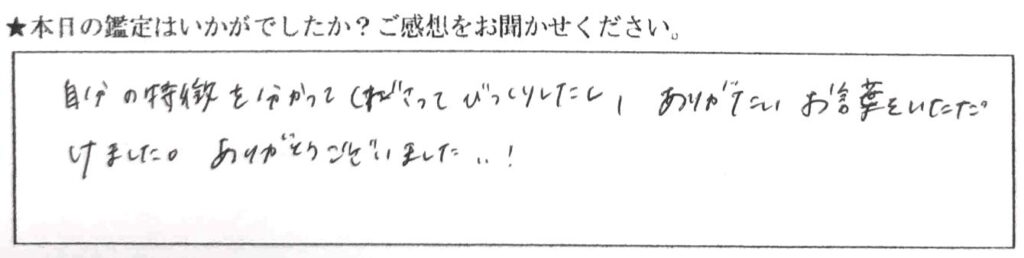 ★本日の鑑定はいかがでしたか？ご感想をお聞かせください。
自分の特徴を分かってくださってびっくりしたし、ありがたいお言葉をいただ
けました。ありがとうございました..！